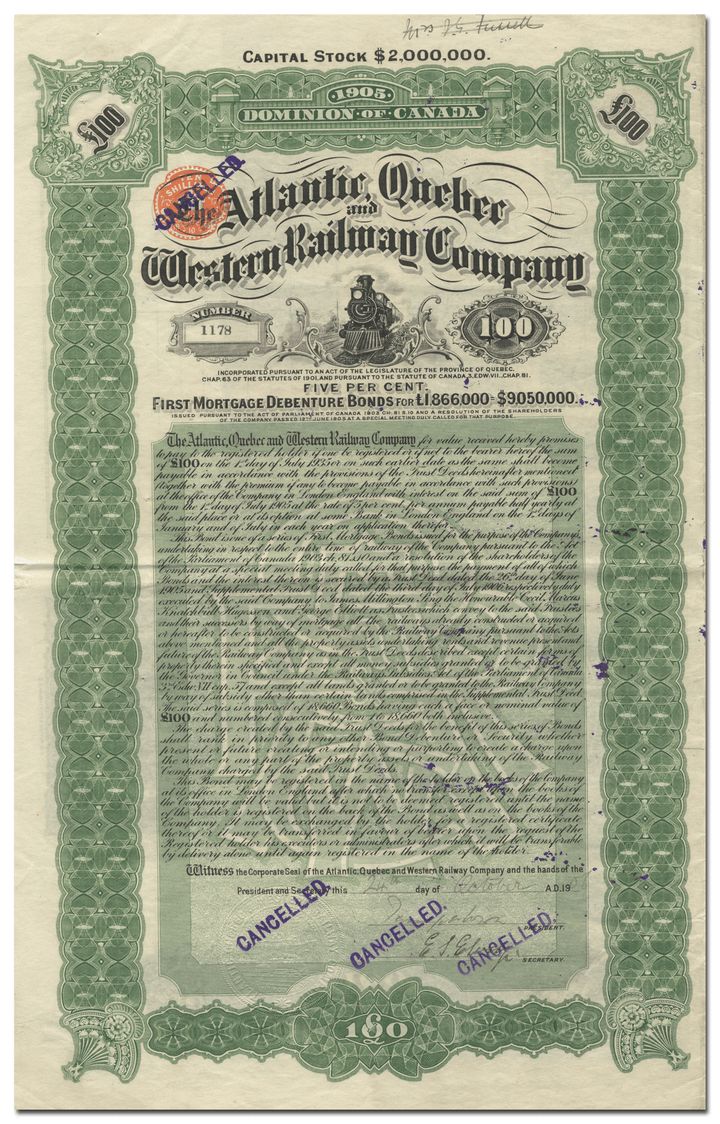 Mrs
CAPITAL STOCK $2,000,000.
1905
DOMINION OF CANADA
£100
£100
TEN SHILLINGS
CANCELLED.
The Atlantic Quebec
and
Western Railway Company
NUMBER
1178
100
INCORPORATED PURSUANT TO AN ACT OF THE LEGISLATURE OF THE PROVINCE OF QUEBEC.
CHAP. 63 OF THE STATUTES OF 1901, AND PURSUANT TO THE STATUTE OF CANADA, 3. EDW. VII., CHAP. 81.
FIVE PER CENT.
FIRST MORTGAGE DEBENTURE BONDS FOR £1,866,000 = $9,050,000.
ISSUED PURSUANT TO THE ACT OF PARLIAMENT OF CANADA 1903 CH: 81 S.10 AND A RESOLUTION OF THE SHAREHOLDERS
OF THE COMPANY PASSED 12TH JUNE 1905 AT A SPECIAL MEETING DULY CALLED FOR THAT PURPOSE.
The Atlantic, Quebec and Western Railway Company for value received hereby promises
to pay to the registered holder if one be registered or if not to the bearer hereof the sum
of £100 on the 1st day of July 1935 or on such earlier date as the same shall become
payable in accordance with the provisions of the Trust Deeds hereafter mentioned
(together with the premium if any to become payable in accordance with such provisions)
at the office of the Company in London England with interest on the said sum of £100
from the 1st day of July 1905 at the rate of 5 per cent per annum payable half yearly at
the said place or at its option at some Bank in London England on the 1st days of
January and of July in each year on application therefor.
This Bond is one of a series of First Mortgage Bonds issued for the purpose of the Company's
undertaking in respect to the entire line of railway of the Company pursuant to the Act
of the Parliament of Canada 1903 ch. 81 s. 10 and a resolution of the shareholders of the
Company at a special meeting duly called for that purpose the payment of all of which
Bonds and the interest thereon is secured by a Trust Deed dated the 26th day of June
1905 and Supplemental Trust Deed dated the third day of July 1906 respectively duly
executed by the said Company to James Millington Sing the Honorable Cecil Marcus
Knatchbull Hugessen, and George Elliott as Trustees which convey to the said Trustees
and their successors by way of mortgage all the railways already constructed or acquired
or hereafter to be constructed or acquired by the Railway Company pursuant to the Acts
above mentioned and all the property assets undertaking rents and revenue present and
future of the Railway Company as in the Trust Deeds described except certain forms of
property therein specified and except all money subsidies granted or to be granted by
the Governor in Council under the Railways Subsidies Act of the Parliament of Canada
3rd Edw. VII cap. 57) and except all lands granted or to be granted to the Railway Company
by way of subsidy other than certain lands comprised in the Supplemental Trust Deed
The said series is composed of 18660 Bonds having each a face or nominal value of
£100 and numbered consecutively from 1 to 18660 both inclusive.
The charge created by the said Trust Deeds for the benefit of this series of Bonds
shall rank in priority to any other Bond Debenture or Security whether
present or future creating or intending or purporting to create a charge upon
the whole or any part of the property assets or undertaking of the Railway
Company charged by the said Trust Deeds.
This Bond may be registered in the name of the holder on the books of the Company
at its office in London England after which no transfer except upon the books of
the Company will be valid but it is not to be deemed registered until the name
of the holder is registered on the back of the Bond as well as on the books of the
Company. It may be exchanged by the holder for a registered certificate
thereof or it may be transferred in favour of bearer upon the request of the
Registered holder his executors or administrators after which it will be transferable
by delivery alone until again registered in the name of the holder.
Witness the Corporate Seal of the Atlantic, Quebec and Western Railway Company and the hands of the
President and Secretary this 24th day of October A.D. 19
PRESIDENT.
E. S.
SECRETARY.
CANCELLED.
CANCELLED.
CANCELLED.
£100